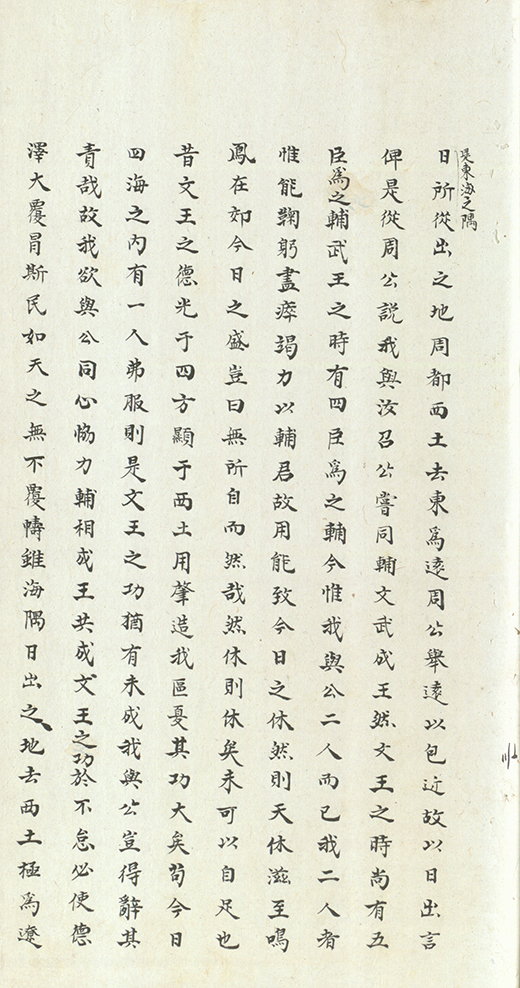 是東海之隅
日所從出之地周都西土去東爲遠周公舉遠以包近故以日出言
俾是從周公説我與汝召公嘗同輔文武成王然文王之時尚有五
臣爲之輔武王之時有四臣爲之輔今惟我與公二人而已我二人者
惟能鞠躬盡瘁竭力以輔君故用能致今日之休然則天休滋至鳴
鳳在郊今日之盛豈曰無所自而然哉然休則休矣未可以自足也
昔文王之德光于四方顯于西土用肇造我區夏其功大矣苟今日
四海之内有一人弗服則是文王之功猶有未成我與公豈得辭其
責哉故我欲與公同心恊力輔相成王共成文王之功於不怠必使德
澤大覆冒斯民如天之無不覆幬雖海隅日出之地去西土極爲遼